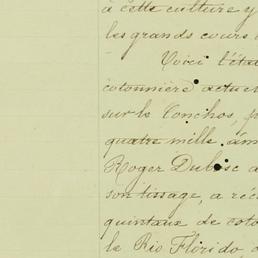 à cette culture y
les grands cours d
Voici l'éta
cotonnière actuel
sur le Conchos, p
quatre mille âm
Roger Dubosc a
son tissage, a réc
quintaux de coto
le Rio Florido, a